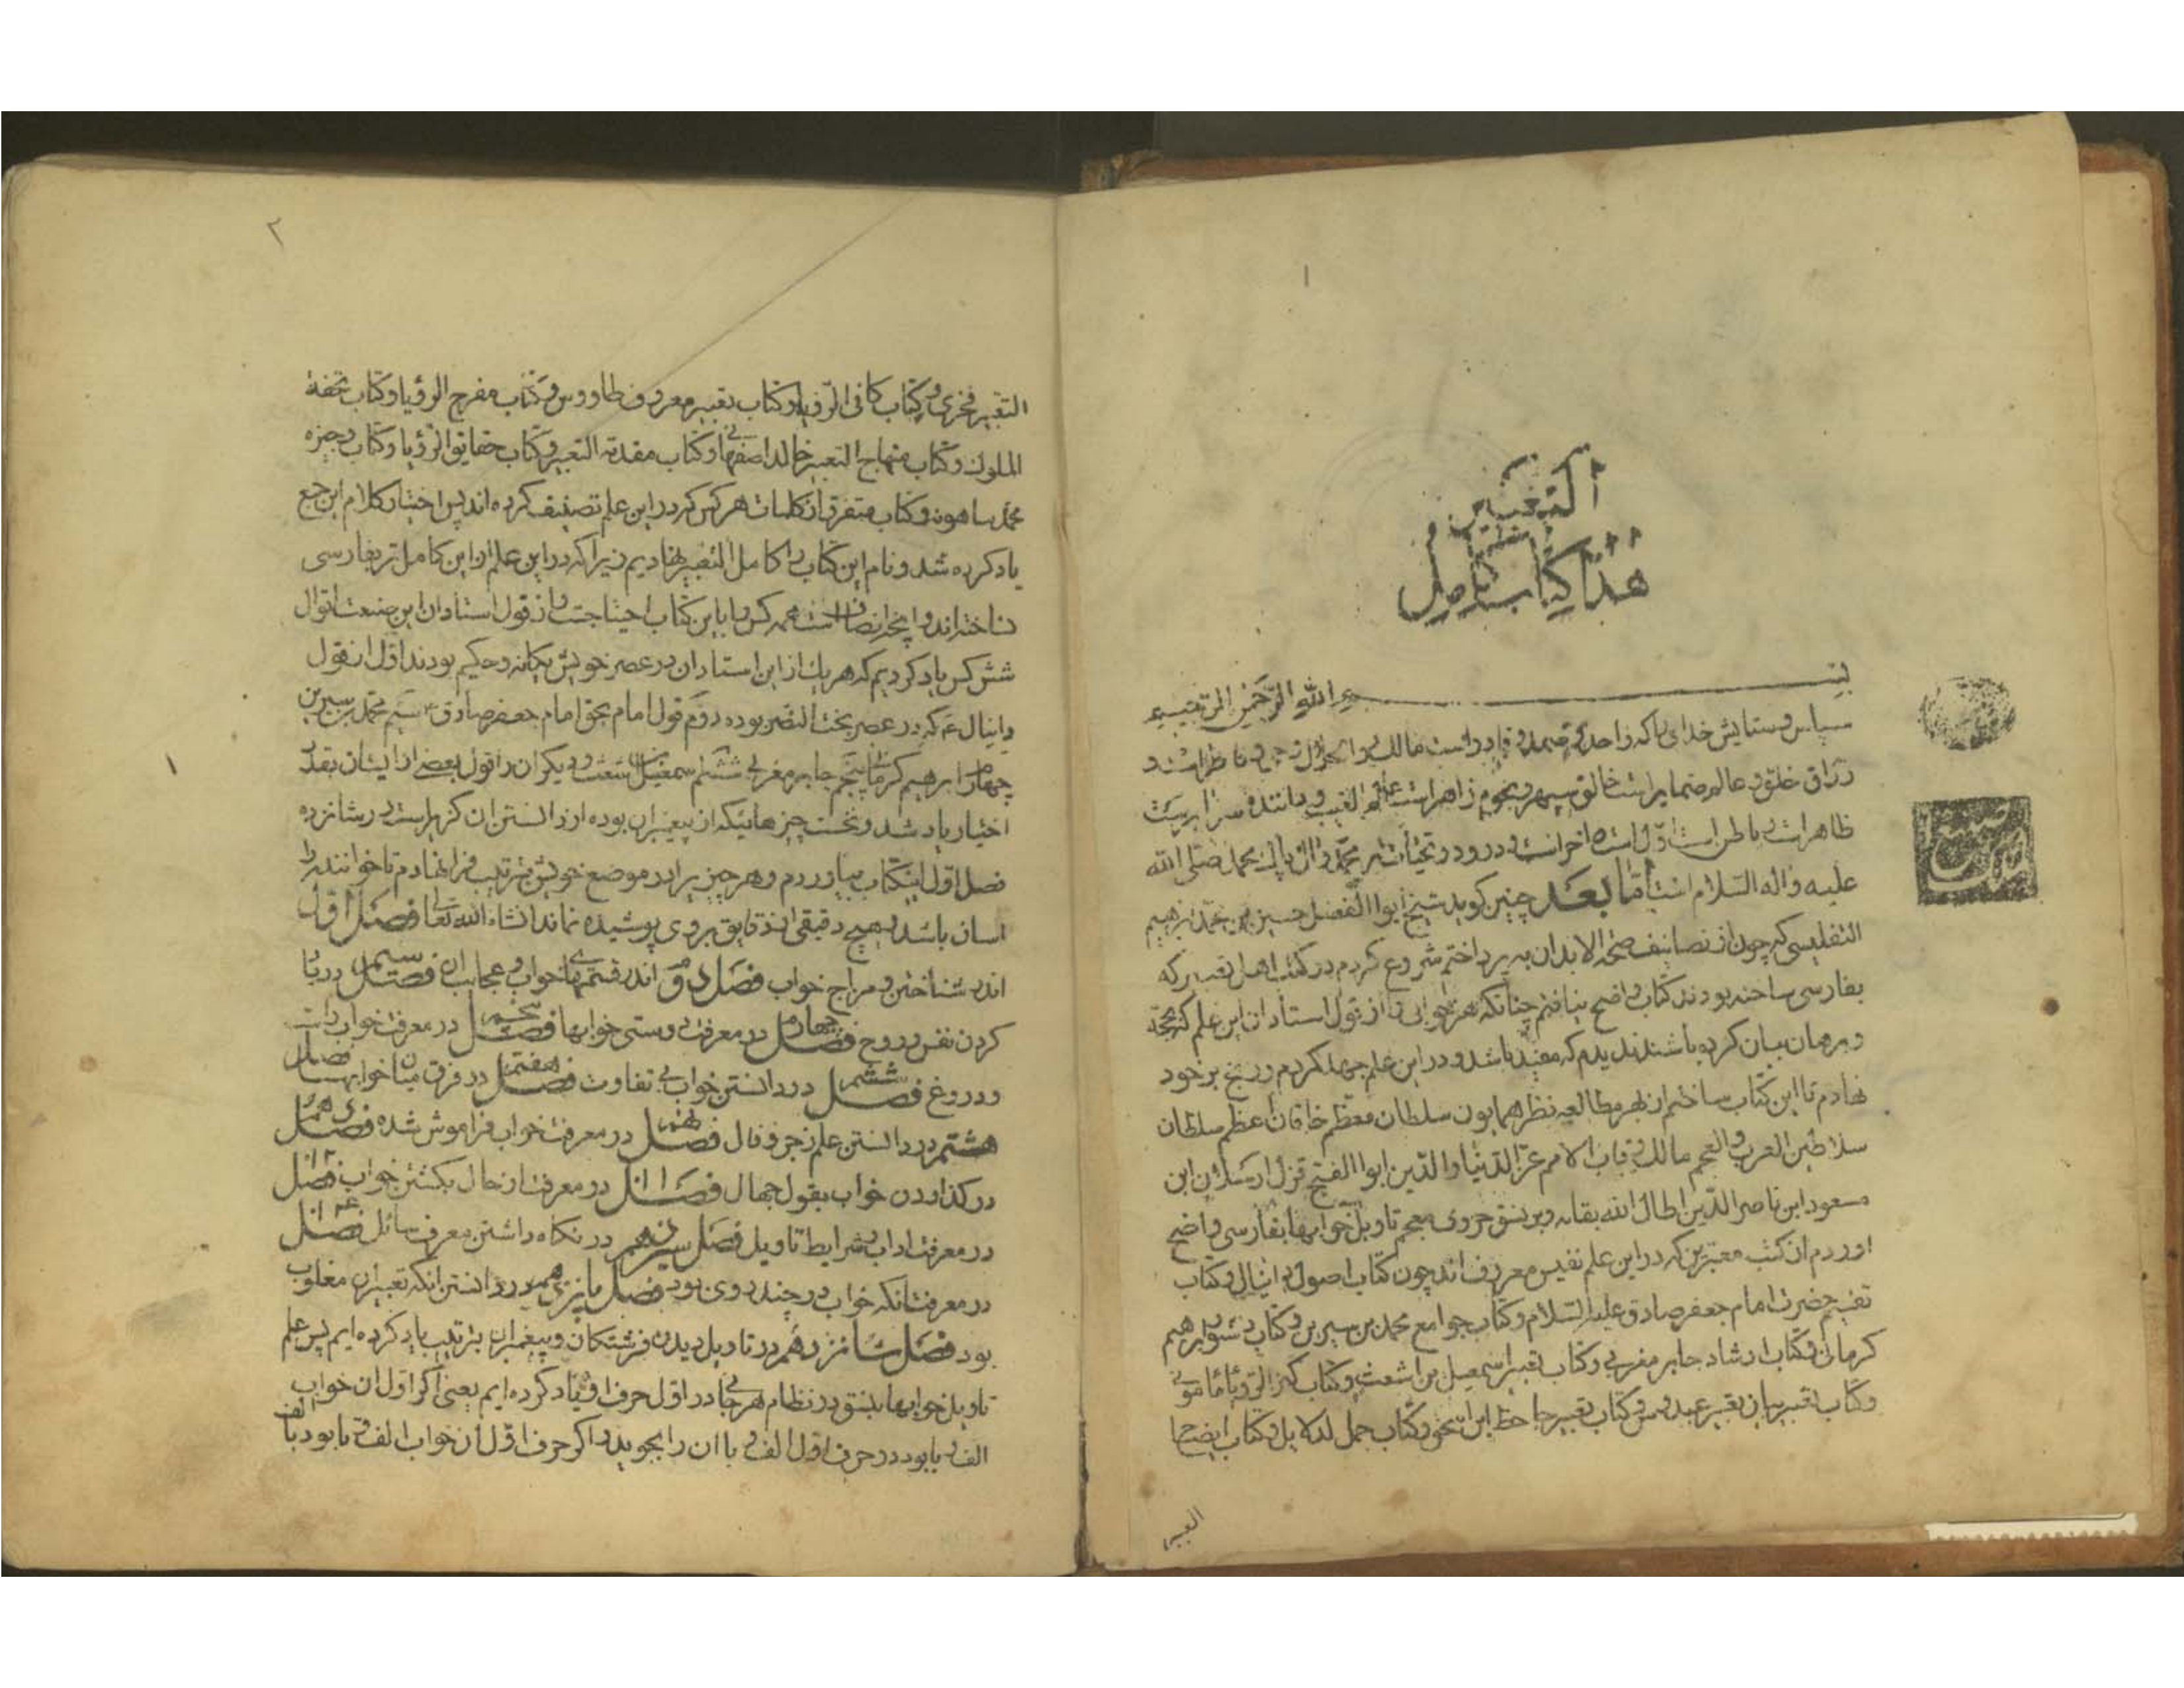 التعبیر
هذا کتاب کامل
بسم الله الرحمن الرحیم
سپاس و ستایش خدای را که واحد و صمد و قادر است مالک
رزاق خلق و عالم ضمایر است خالق سپهر و نجوم زاهر است عالم الغیب و داننده سرایر است
ظاهر است باطن است اول است اخر است و درود و تحیات بر محمد و ال محمد صلی الله
علیه و اله السلام اما بعد چنین کوید شیخ ابو الفضل حسین بن محمد ابرهیم
التفلیسی که چون از تصانیف صحة الابدان بپرداختم شروع کردم در کتب اهل تعبیر که
بفارسی ساخته بودند کتاب واضح نیافتم چنانکه هر خوابی را از قول استادان این علم که بحجة
و برهان بیان کرده باشند ندیدم که مفید باشد و در این علم جهد کردم و رنج بر خود
نهادم تا این کتاب ساختم از بهر مطالعه نظر همایون سلطان معظم خاقان اعظم سلطان
سلاطین العرب و العجم مالک رقاب الامم عز الدنیا و الدین ابو الفتح قزل ارسلان ابن
مسعود ابن ناصر الدین اطال الله بقائه و بر نسق حروف معجم تاویل خوابها بفارسی واضح
اوردم از کتب معتبرین که در این علم نفیس معروف اند چون کتاب اصول دانیال و کتاب
تقسیم حضرت امام جعفر صادق علیه السلام و کتاب جوامع محمد بن سیرین و کتاب دستور ابرهیم
کرمانی و کتاب ارشاد جابر مغربی و کتاب تعبیر اسمعیل بن اشعث و کتاب کنز الرویا مامونی
و کتاب تعبیر بیان تعبیر عبدوس و کتاب تعبیر حافظ ابن اسحق و کتاب جمل الدلایل و کتاب ایضح
التعبیر
۲
التعبیر فخری و کتاب کافی الرؤیا و کتاب تعبیر معروف طاووس و کتاب مفرح الرؤیا و کتاب تحفة
الملوک و کتاب منهاج التعبیر خالد اصفهانی و کتاب مقدمة التعبیر و کتاب حقایق الرؤیا و کتاب وجیزه
محمد شاهویه و کتاب متفرق از کلمات هر کس که در این علم تصنیف کرده اند پس اختیار کلام این جمع
یاد کرده شد و نام این کتاب را کامل التعبیر نهادیم زیرا که در این علم از این کامل تر بفارسی
نساخته اند و همه کس را باین کتاب احتیاجست و از قول استادان این صنعت اقوال
شش کس یاد کردیم که هر یک از این استادان در عصر خویش یکانه و حکیم بودند اول از قول
دانیال ع که در عصر بخت النصر بوده دوم قول امام بحق امام جعفر صادق ع سیم محمد بن سیرین
چهارم ابرهیم کرمانی پنجم جابر مغربی ششم اسمعیل اشعث و دیکران را قول بعضی از ایشان بقدر
اختیار یاد شد و نخست چیزهائیکه از پیغمبران بوده از دانستن ان در شانزده
فصل اول اینکتاب بیاوردم و هر چیز را در موضع خویش بترتیب فرا نهادم تا خواننده را
اسان باشد و هیچ دقیقی از دقایق بر وی پوشیده نماند انشاء الله تعالی فصل اول
اندر شناختن و مزاج خواب فصل دوم اندر قسمهای خواب و عجایب ان فصل سیم در یاد
کردن نفس و روح فصل چهارم در معرفت درستی خوابها فصل پنجم در معرفت خواب راست
و دروغ فصل ششم در دانستن خواب بی تفاوت فصل هفتم در فرق میان خوابها فصل
هشتم در دانستن علم زجر و فال فصل نهم در معرفت خواب فراموش شده فصل دهم
در کذاردن خواب بقول جهال فصل ۱۱ در معرفت از حال بکشتن خواب فصل ۱۲
در معرفت اداب شرایط تاویل فصل سیزدهم در نکاه داشتن معرف سائل فصل ۱۴
در معرفت انکه خواب در چند روی بود فصل پانزدهم در دانستن انکه تعبیر ان مغلوب
بود فصل شانزدهم در تاویل دیدن فرشتکان و پیغمبران بترتیب یاد کرده ایم پس علم
تاویل خوابها بنسق در نظام هر جا در اول حرف او یاد کرده ایم یعنی اکر اول ان خواب
الف و با بود در حرف اول الف و با ان را بجوید و اکر حرف اول ان خواب الف و تا بود با الف